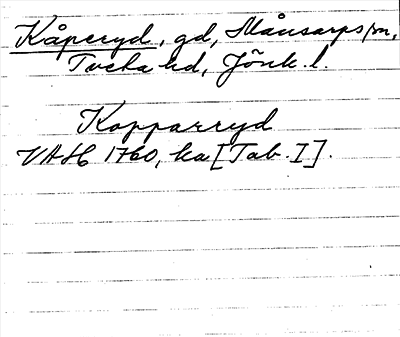 Kåperyd, gd, Månsarps sn,
Tveta hd, Jönk. l.
Kopparryd
VAH 1760, ka [Tab. I].